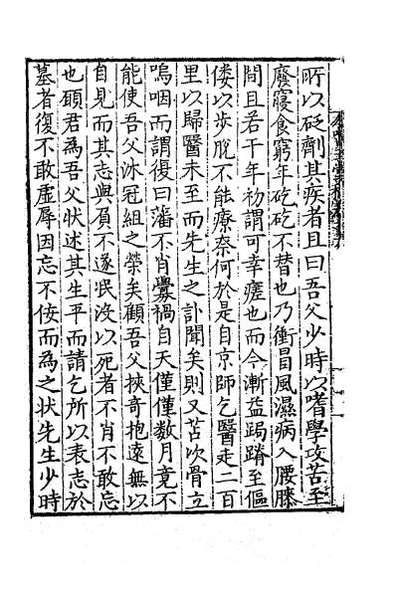 所以砭劑其疾者且曰吾父少時以嗜學攻苦至
廢寢食窮年矻矻不替也乃衝冒風濕病入腰膝
間且若干年初謂可幸瘥也而今漸益跼蹐至傴
僂以步脫不能療奈何於是自京師乞醫走二百
里以歸醫未至而先生之訃聞矣則又苦次骨立
嗚咽而謂復曰藩不肖釁禍自天僅僅數月竟不
能使吾父沐冠組之榮矣顧吾父挾奇抱遠無以
自見而其志與願不遂泯沒以死者不肖不敢忘
也願君為吾父狀述其生平而請乞所以表志於
墓者復不敢虛辱因忘不佞而為之狀先生少時